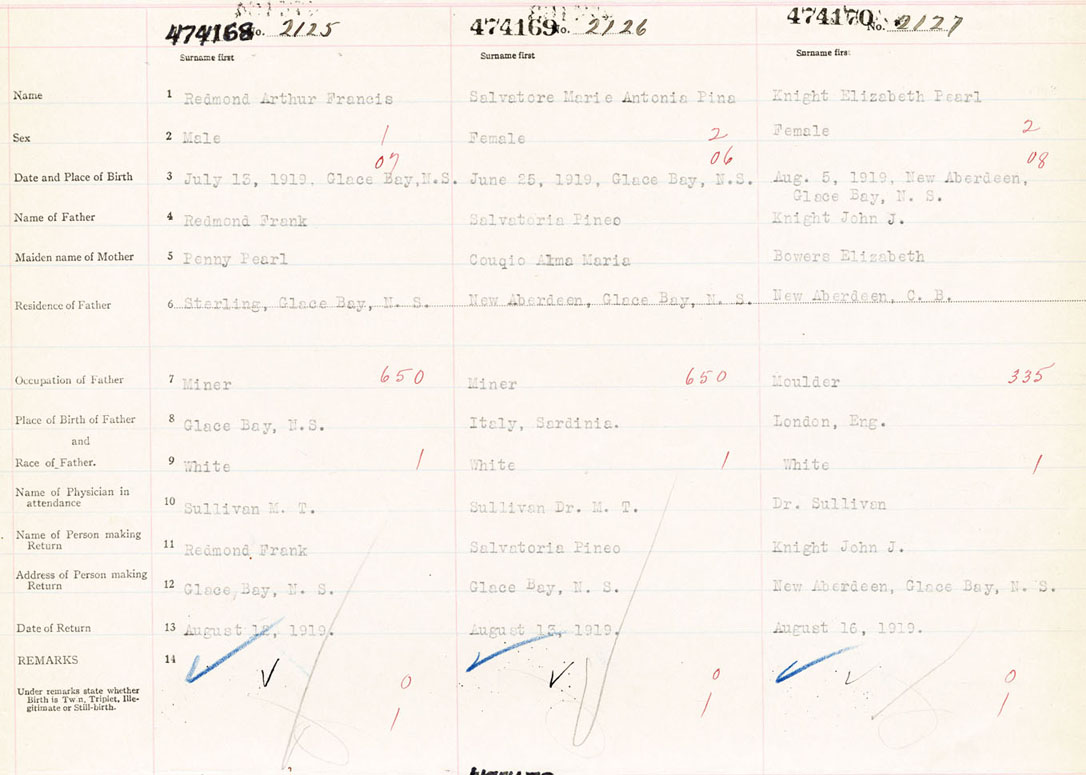 474168 No. 2125 474169 No. 2126 474170 No. 2127
Surname first Surname first Surname firs
Name 1 Redmond Arthur Francis Salvatore Marie Antonia Pina Knight Elizabeth Pearl
Sex 2 Male 1 Female 2 Female 2
07 06 08
Date and Place of Birth 3 July 13, 1919, Glace Bay,N.S. June 25, 1919, Glace Bay, N.S. Aug. 5, 1919, New Aberdeen,
Glace Bay, N. S.
Name of Father 4 Redmond Frank Salvatoria Pineo Knight John J.
Maiden name of Mother 5 Penny Pearl Couqio Alma Maria Bowers Elizabeth
Residence of Father 6 Sterling, Glace Bay, N. S. New Aberdeen, Glace Bay, N. S. New Aberdeen, C. B.
Occupation of Father 7 Miner 650 Miner 650 Moulder 335
Place of Birth of Father 8 Glace Bay, N.S. Italy, Sardinia. London, Eng.
and
Race of Father. 9 White 1 White 1 White 1
Name of Physician in
attendance 10 Sullivan M. T. Sullivan Dr. M. T. Dr. Sullivan
Name of Person making
Return 11 Redmond Frank Salvatoria Pineo Knight John J.
Address of Person making
Return 12 Glace Bay, N. S. Glace Bay, N. S. New Aberdeen, Glace Bay, N. S.
Date of Return 13 August 12, 1919. August 13, 1919. August 16, 1919.
REMARKS 14
Under remarks state whether 0 0 0
Birth is Twn, Triplet, Ille-
gitimate or Still-birth. 1 1 1